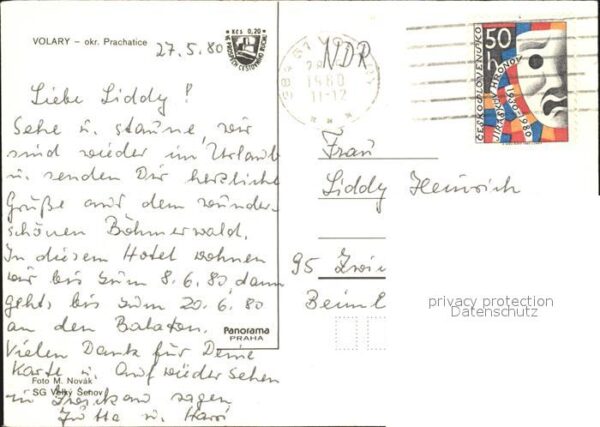 VOLARY – okr. Prachatice
27.5.80
Kčs 0,20
Liebe Liddy!
Sehe u. staune, wir
sind wieder im Urlaub
u. senden Dir herzliche
Grüße aus dem wunder-
schönen Böhmerwald.
In diesem Hotel wohnen
wir bis zum 8.6.80, dann
geht's bis zum 20.6.80
an den Balaton.
Vielen Dank für Deine
Karte u. Auf Wiedersehen
in Zwickau sagen
Jutta u.
Foto M. Novák
SG Velký Šenov
Panorama
PRAHA
NDR
384 51 VOLARY
1980
11-12
50 h
ČESKOSLOVENSKO
JIRÁSKŮV HRONOV
1930-1980
Frau
Liddy Heinrich
95 Zwi
privacy protection
Datenschutz